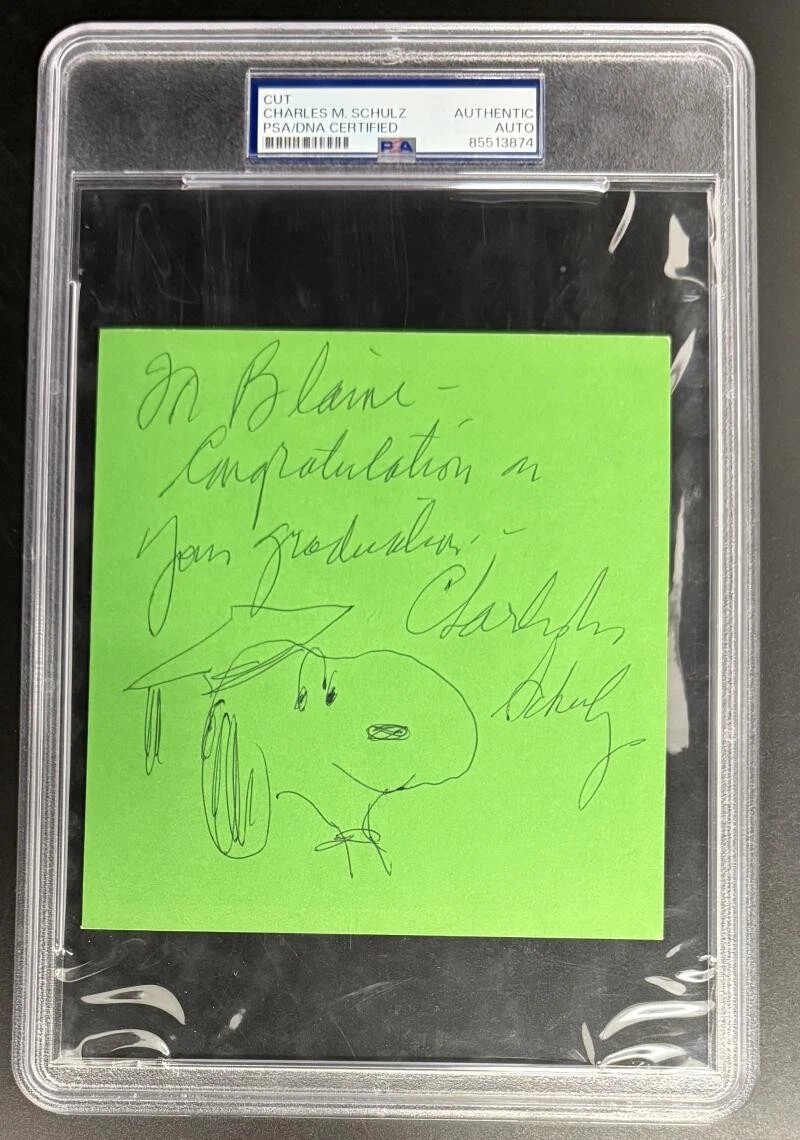 CUT
CHARLES M. SCHULZ
PSA/DNA CERTIFIED
AUTHENTIC
AUTO
85513874
PSA
For Blaine -
Congratulation on
your graduation -
Charles
Schulz